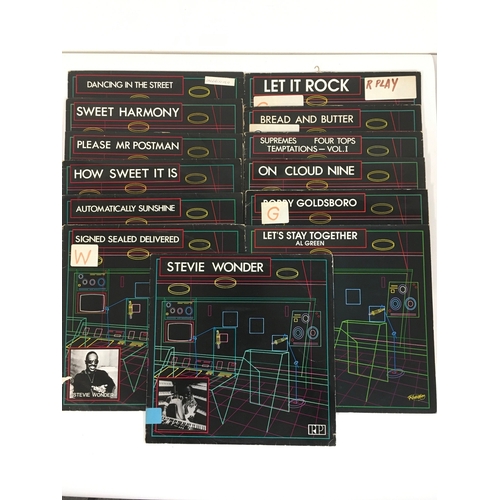 DANCING IN THE STREET
SWEET HARMONY
PLEASE MR POSTMAN
HOW SWEET IT IS
AUTOMATICALLY SUNSHINE
SIGNED SEALED DELIVERED
W
STEVIE WONDER
LET IT ROCK
R PLAY
BREAD AND BUTTER
SUPREMES FOUR TOPS
TEMPTATIONS - VOL.1
ON CLOUD NINE
BOBBY GOLDSBORO
G
LET'S STAY TOGETHER
AL GREEN
STEVIE WONDER